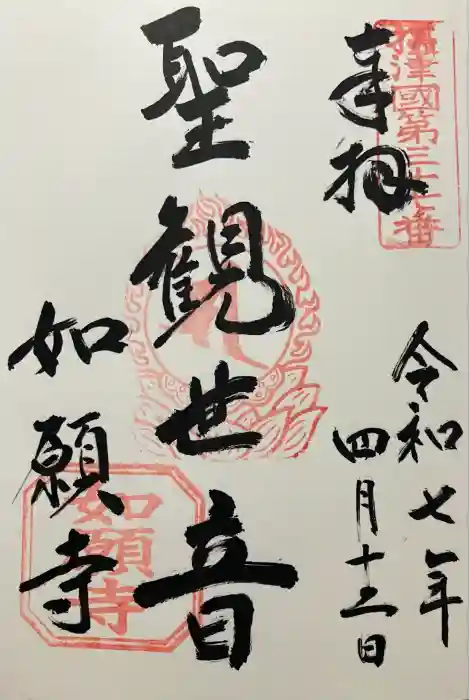 攝津國第三十七番
奉拝
令和七年
四月十三日
聖観世音
如願寺
如願寺